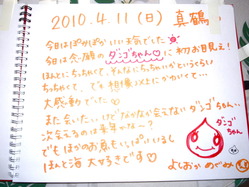 2010.4.11(日) 真鶴
今日はぽかぽかいい天気でした
今日は念願の ダンゴちゃん♡に初お目見え!
ほんとにちっちゃくて、そんなにちっちゃいかというくらい
ちっちゃくて、でも
大感動でした
また会いたいけどなかなか会えないダンゴちゃん…
次会えるのは来年かな〜?
でもほかのお魚もいっぱいいるし
ほんと海大好きです♡
ダンゴちゃん
よしおか めぐみ